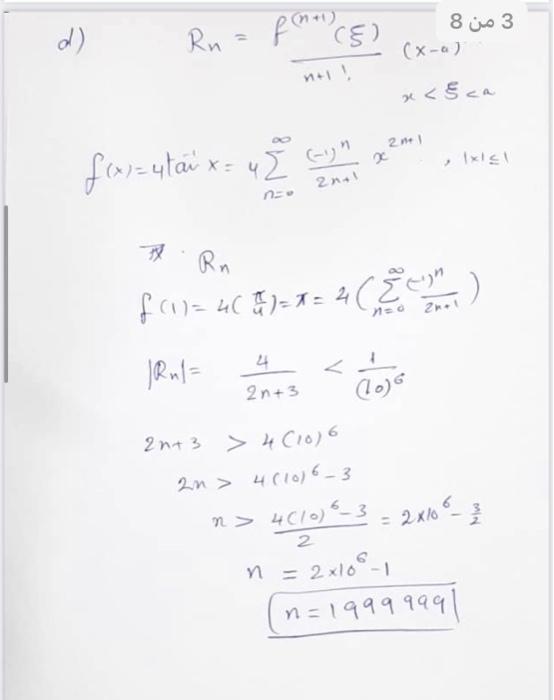 3 من 8
d) Rn = f^(n+1) (ξ) / n+1 ! (x-a)
x < ξ < a
f(x) = 4 tan⁻¹ x = 4 ∑_{n=0}^{∞} (-1)^n / 2n+1 x^{2n+1} , |x| ≤ 1
Rn
f(1) = 4(π/4) = π = 4 ( ∑_{n=0}^{∞} (-1)^n / 2n+1 )
|Rn| = 4 / 2n+3 < 1 / (10)^6
2n+3 > 4(10)^6
2n > 4(10)^6 - 3
n > 4(10)^6 - 3 / 2 = 2×10^6 - 3/2
n = 2×10^6 - 1
n = 1999999